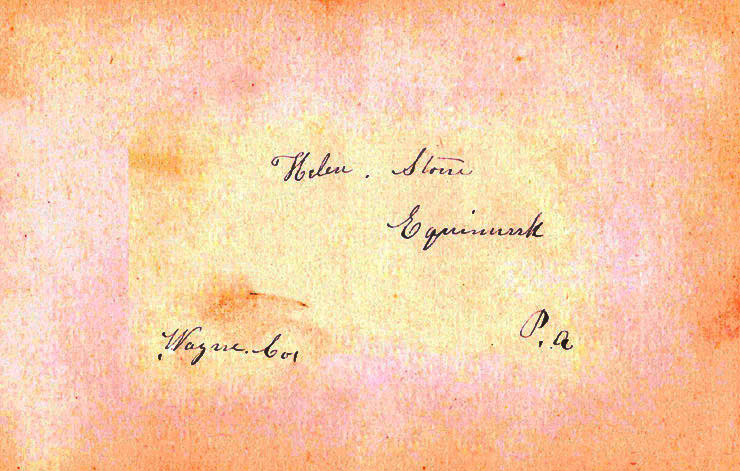 Helen. Stone
Equinunk
Wayne. Co,
P.a